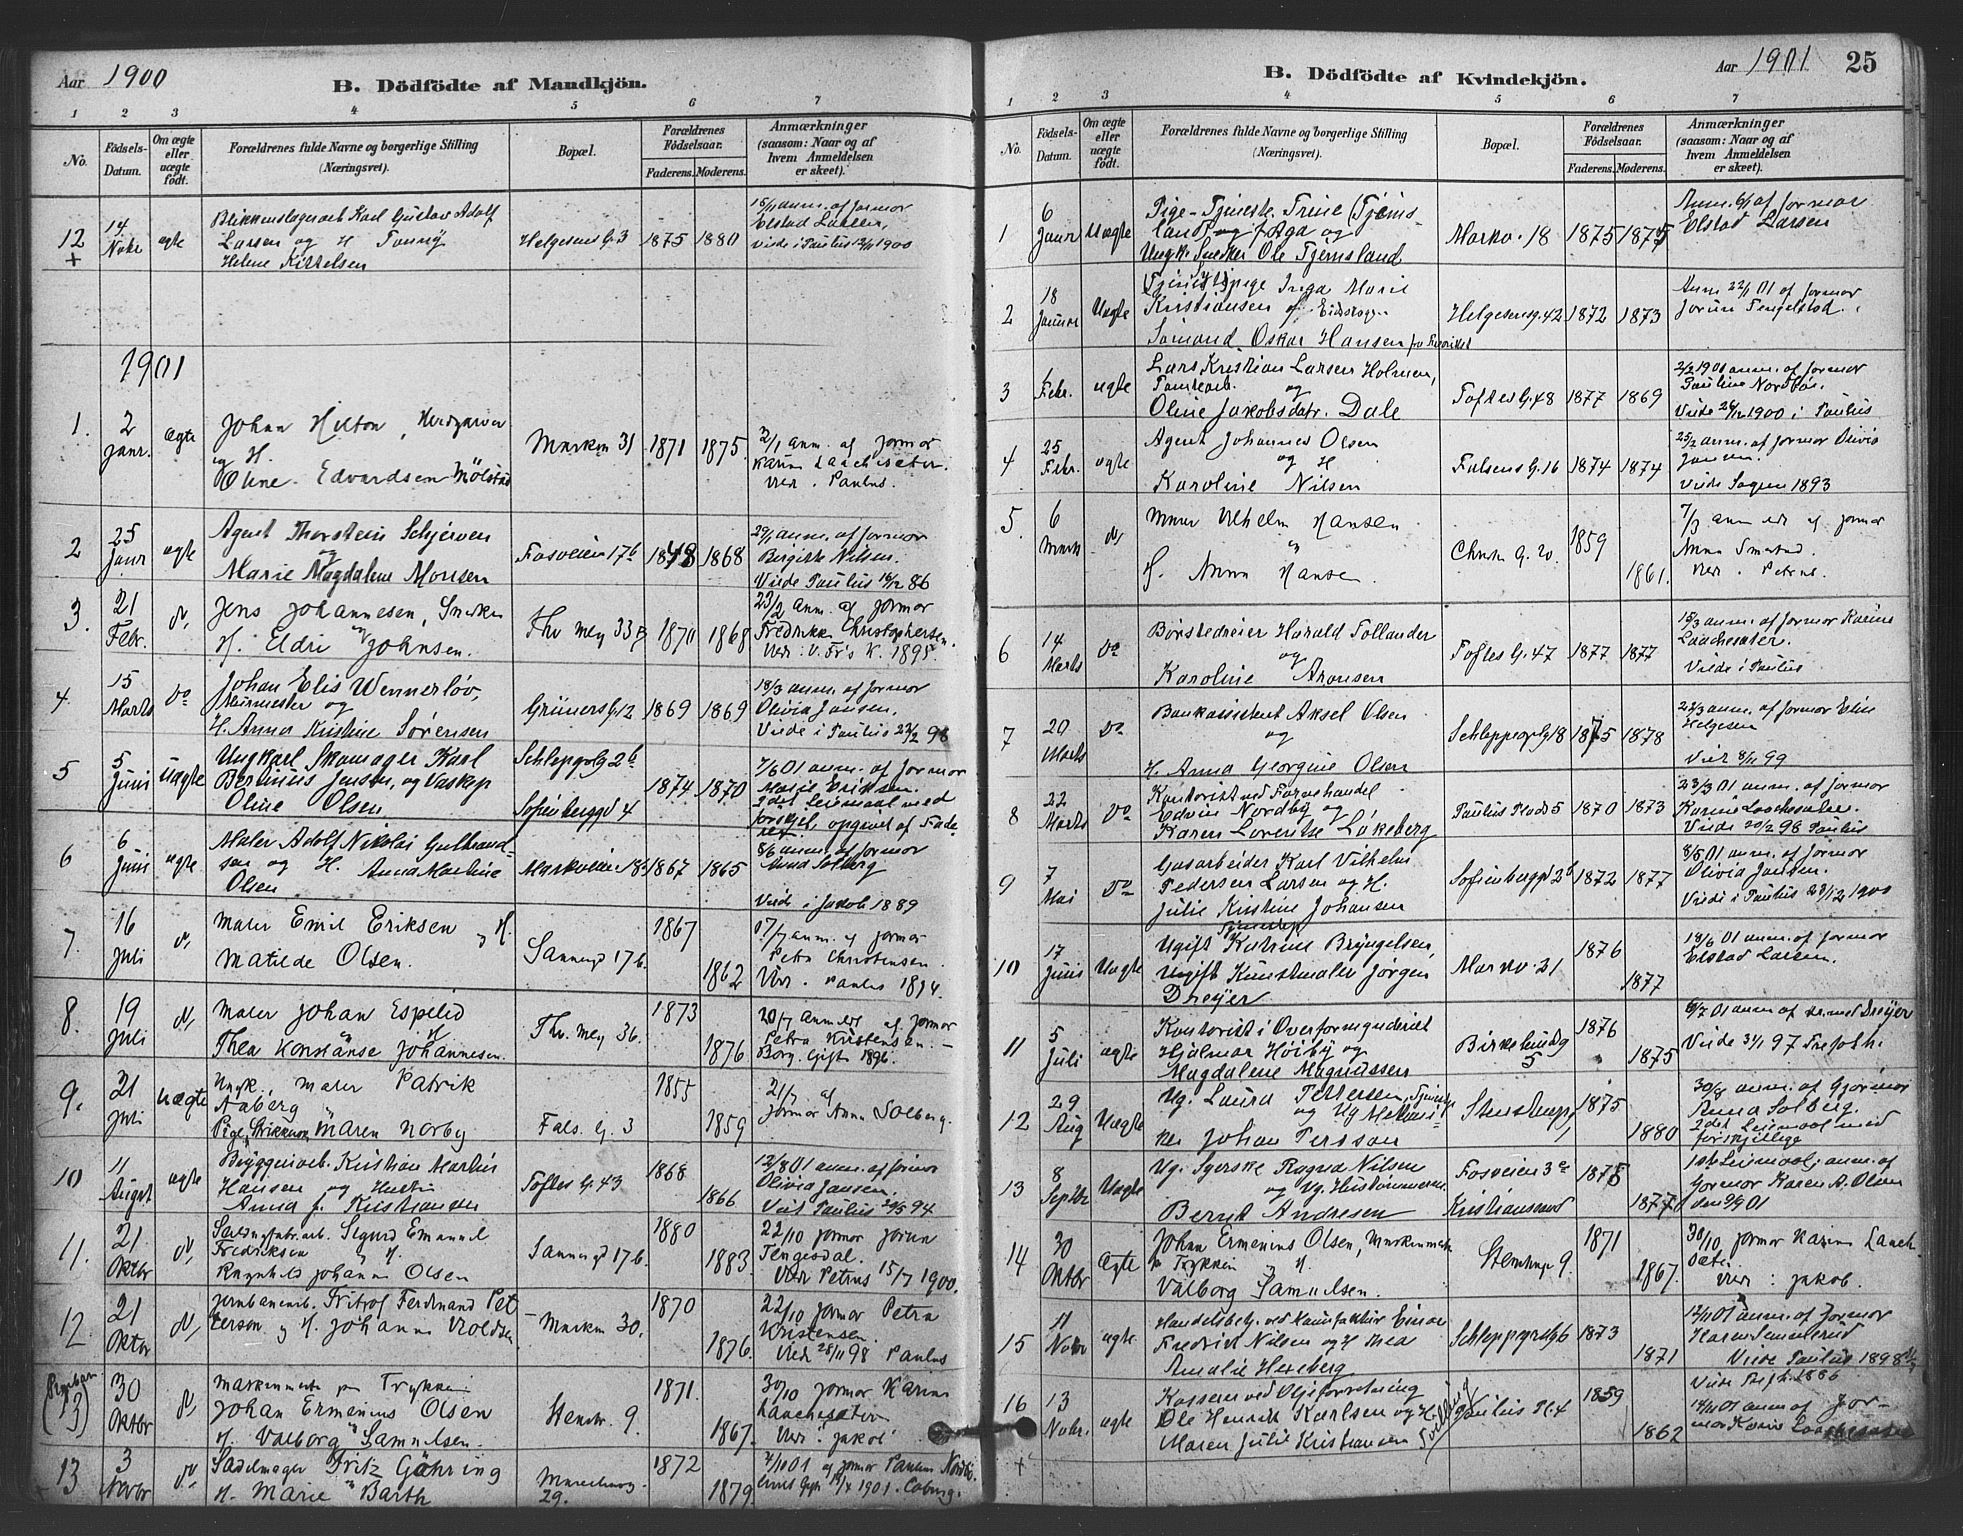 Aar 1900
B. Dödfödte af Mandkjön.
1 2 3 4 5 6 7
No.
Födsels-Datum.
Om ægte eller uægte födt.
Forældrenes fulde Navne og borgerlige Stilling (Næringsvei).
Bopæl.
Forældrenes Födselsaar.
Faderens. Moderens.
Anmærkninger (saasom: Naar og af hvem Anmeldelsen er skeet).
12 + 14 Nvbr ægte
Karl Gustav Adolf
Larsen og H Fanny
Helene Kittelsen
Helgesens G. 3 1875 1880
15/11 anm. af Jormor
Elstad Larsen,
Viede i Paulus 1900
1901
1. 2 Janr. Ægte
Johan Hilton,
og H.
Oline Edvardsen Mölstad
Markvn 31 1871 1875.
3/1 anm. af Jormor
Karin Laachesæter.
Vied. Paulus.
2 25 Janr ægte
Agent Thorstein Schjerven
og
Marie Magdalene Monsen
Fosveien 17b 1848 1868
29/1 anm. af Jormor
Birgitte Nilsen.
Viede Paulus 19/12 86
3. 21 Febr. do
Jens Johannesen, Snedker
H. Eldri Johnsen.
Thv. mey 33 B 1870 1868
23/2 anm. af Jormor
Fredrikke Christophersen.
Vied: V. Fr's K. 1895.
4 15 Marts do
Johan Elis Wennerlöv,
Murmester og
H. Anna Kristine Sörensen
Grüners G. 12 1869 1869
18/3 anm. af Jormor
Olivia Jansen.
Viede i Paulus 22/2 98
5 5 Juni Uægte
Ungkarl Skomager Karl
Bertinius Jensen, og Vaskep
Oline Olsen
Schleppgrlg 2b
Sofienberggd 4
1874 1870
7/6 01 anm. af Jormor
Marie Eriksen.
2det Leiermaal med
forskjel. opgivet af Fade
6 6 Juni ægte
Maler Adolf Nikolai Gulbrand-
sen og H. Anna Martine
Olsen
Markveien 18 1867 1865
8/6 anm. af Jormor
Anna Solberg
Viede i Jakob 1889
7. 16 Juli do
Maler Emil Eriksen og H.
Matilde Olsen.
Sannergd 17 b. 1867 1862
17/7 anm. af Jormor
Petra Christensen.
Vied. Paulus 1894.
8. 19 Juli do
Maler Johan Espelid
og H
Thea Konstanse Johannesen.
Thv. mey 36. 1873 1876
20/7 anm af Jormor
Petra Kristensen.
Borg. Gift 1896.
9. 21 Juli Uægte
Ungk. Maler Patrik
Aaberg
Pige, Maren Norby
Fals. G. 3 1855 1859
21/7 af
Jormor Anna Solberg.
10 11 Augst ægte
Bryggeriarb. Kristian Martin
Hansen og Hustru
Anna J. Kristiansen
Toftes G. 43 1868 1866
12/8 01 anm. af Jormor
Olivia Jansen.
Viet Paulus 20/5 94
11. 21 Oktbr do
Sigurd Emanuel
Fredriksen H.
Ragnhild Johanne Olsen
Sannergd 17 b. 1880 1883.
22/10 Jormor Jorun
Tengesdal.
Vied Petrus 15/7 1900.
12. 21 Oktbr do
Jernbanearb. Fritjof Ferdinand Pet
terson og H. Johanne Voldsen
Markvn 30. 1870 1876.
22/10 Jormor Petra
Kristensen.
Vied 28/11 98 Paulus
(13) 30 Oktbr do
Maskinmester paa Trykkeri
Johan Ermenius Olsen
H. Valborg Samuelsen.
Stenstr. 9. 1871. 1867.
30/10 Jormor Karine
Laachesæter
Vied: Jakob
13 3 Novbr do
Sadelmager Fritz Göhring
H. Marie Barth
29. 1872 1879.
1901. Coburg.
Aar 1901 25
B. Dödfödte af Kvindekjön.
1 2 3 4 5 6 7
No.
Födsels-Datum.
Om ægte eller uægte födt.
Forældrenes fulde Navne og borgerlige Stilling (Næringsvei).
Bopæl.
Forældrenes Födselsaar.
Faderens. Moderens.
Anmærkninger (saasom: Naar og af hvem Anmeldelsen er skeet).
1 6 Janr Uægte
Pige-Tjeneste Trine (Tjems-
land) og
Ungk. Snedker Ole Tjemsland
Markv. 18 1875 1875
Anm. 6/1 af Jormor
Elstad Larsen
2 18 Januar Uægte
Tjenestepige Inga Marie
Kristiansen af Eidskogen
Sömand Oskar Hansen fra Fredriksst
Helgesensg. 42 1872 1873
Anm 22/1 01 af Jormor
Jorun Tengelsdad.
3 1 Febr. ægte
Lars Kristian Larsen Holmen,
og
Oline Jakobsdatr. Dale
Toftes G. 48 1877 1869
2/2 1901 anm. af Jormor
Pauline Nordbös.
Viede 26/12 1900 i Paulus
4 25 Febr. ægte
Agent Johannes Olsen
og H
Karoline Nilsen
Falsens G. 16 1874 1874
25/2 anm. af Jormor Olivia
Jansen.
Viede Sagen 1893
5. 6 Marts do
Murer Vilhelm Hansen
og
H. Anna Hansen.
Chrsti G. 20. 1859 1861.
7/3 anm af Jormor
Anna Smstad.
Vied. Petrus.
6 14 Marts do
Börstedreier Harald Follander
og
Karoline Aronsen
Toftes G. 47 1877 1877
15/3 anm. af Jormor Karine
Laachesæter.
Viede i Paulus
7 20 Marts do
Bankassistent Aksel Olsen
og
H. Anna Georgine Olsen
Schleppegrlg 18 1875 1878
22/3 anm. af Jormor Elise
Helgesen
Viet 8/11 99
8 22 Marts do
Kontorist ved Farvehandel
Edvin Nordby og
Karen Lorentse Lökeberg
Paulus Plads 5 1870 1873
23/3 01 anm. af Jormor
Karine Laachesæter.
Viede 20/2 98 Paulus
9 7 Mai do
Gasarbeider Karl Vilhelm
Pedersen Larsen og H.
Julie Kristine Johansen
Sofienberggd 26 1872 1877
8/5 01 anm. af Jormor
Olivia Jansen.
Viede i Paulus 28/12 1900
10 17 Juni Uægte
Tjenestep
Ugift Katrine Bryngelsen,
Ugift Kunstmaler Jörgen
Dreyer
Markv. 31 1876 1877
18/6 01 anm. af Jormor
Elstad Larsen.
11 5 Juli ægte
Kontorist i Overformynderiet
Hjalmar Höiby og
Magdalene Magnussen
Birkelundg 5 1876 1875
6/7 01 anm af Hr. med Dreyer
Viede 31/1 97 Trefoldh.
12 29 Aug Uægte
Ug. Laura Pettersen, Tjeneste
og Ug Mekani-
ker Johan Persson
Stenstrup 1 1875 1880
30/8 anm. af Gjormor
Anna Solberg.
2det Leiermaal med
forskjellige
13 8 Septbr Uægte
Ug. Syerske Ragna Nilsen
og Ug. Hustömmerm.
Bernt Andresen
Fosveien 3a
Kristianssand
1875 1877
1ste Leiermaal; anm. af
Gormor Karen A. Olsen
den 9/9 01
14 30 Oktbr Ægte
Johan Ermenius Olsen, Maskinmester
p Trykkeri H.
Valborg Samuelsen.
Stenstrup 9. 1871 1867.
30/10 Jormor Karine Laach-
sæter
Vied: Jakob.
15 11 Novbr ægte
Handelsbetj. ved Manufaktur Einar
Fredrik Nilsen og H Thea
Amalie Herberg
Schleppegrlg 6 1873 1871
12/11 01 anm. af Jormor
Karen Semmerud
Viede Paulus 1898
16 + 13 Novbr. ægte
Kasserer ved Oljeforretning
Ole Henrik Karlsen og H.
Maren Julie Kristiansen
Paulus Pl. 4 1859 1862
Viede 1886
14/11 01 anm af Jor-
mor Karin Laachesæter